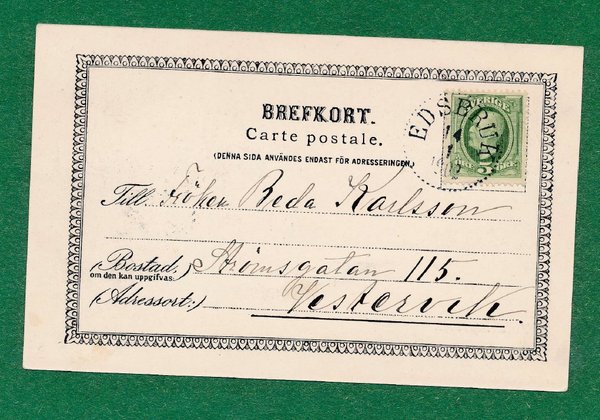 BREFKORT.
Carte postale.
(DENNA SIDA ANVÄNDES ENDAST FÖR ADRESSERINGEN.)
EDSBRUK
14
SVERIGE
Till Fröken Beda Karlsson
(Bostad:) Strömsgatan 115.
om den kan uppgifvas:
(Adressort:) Vestervik.